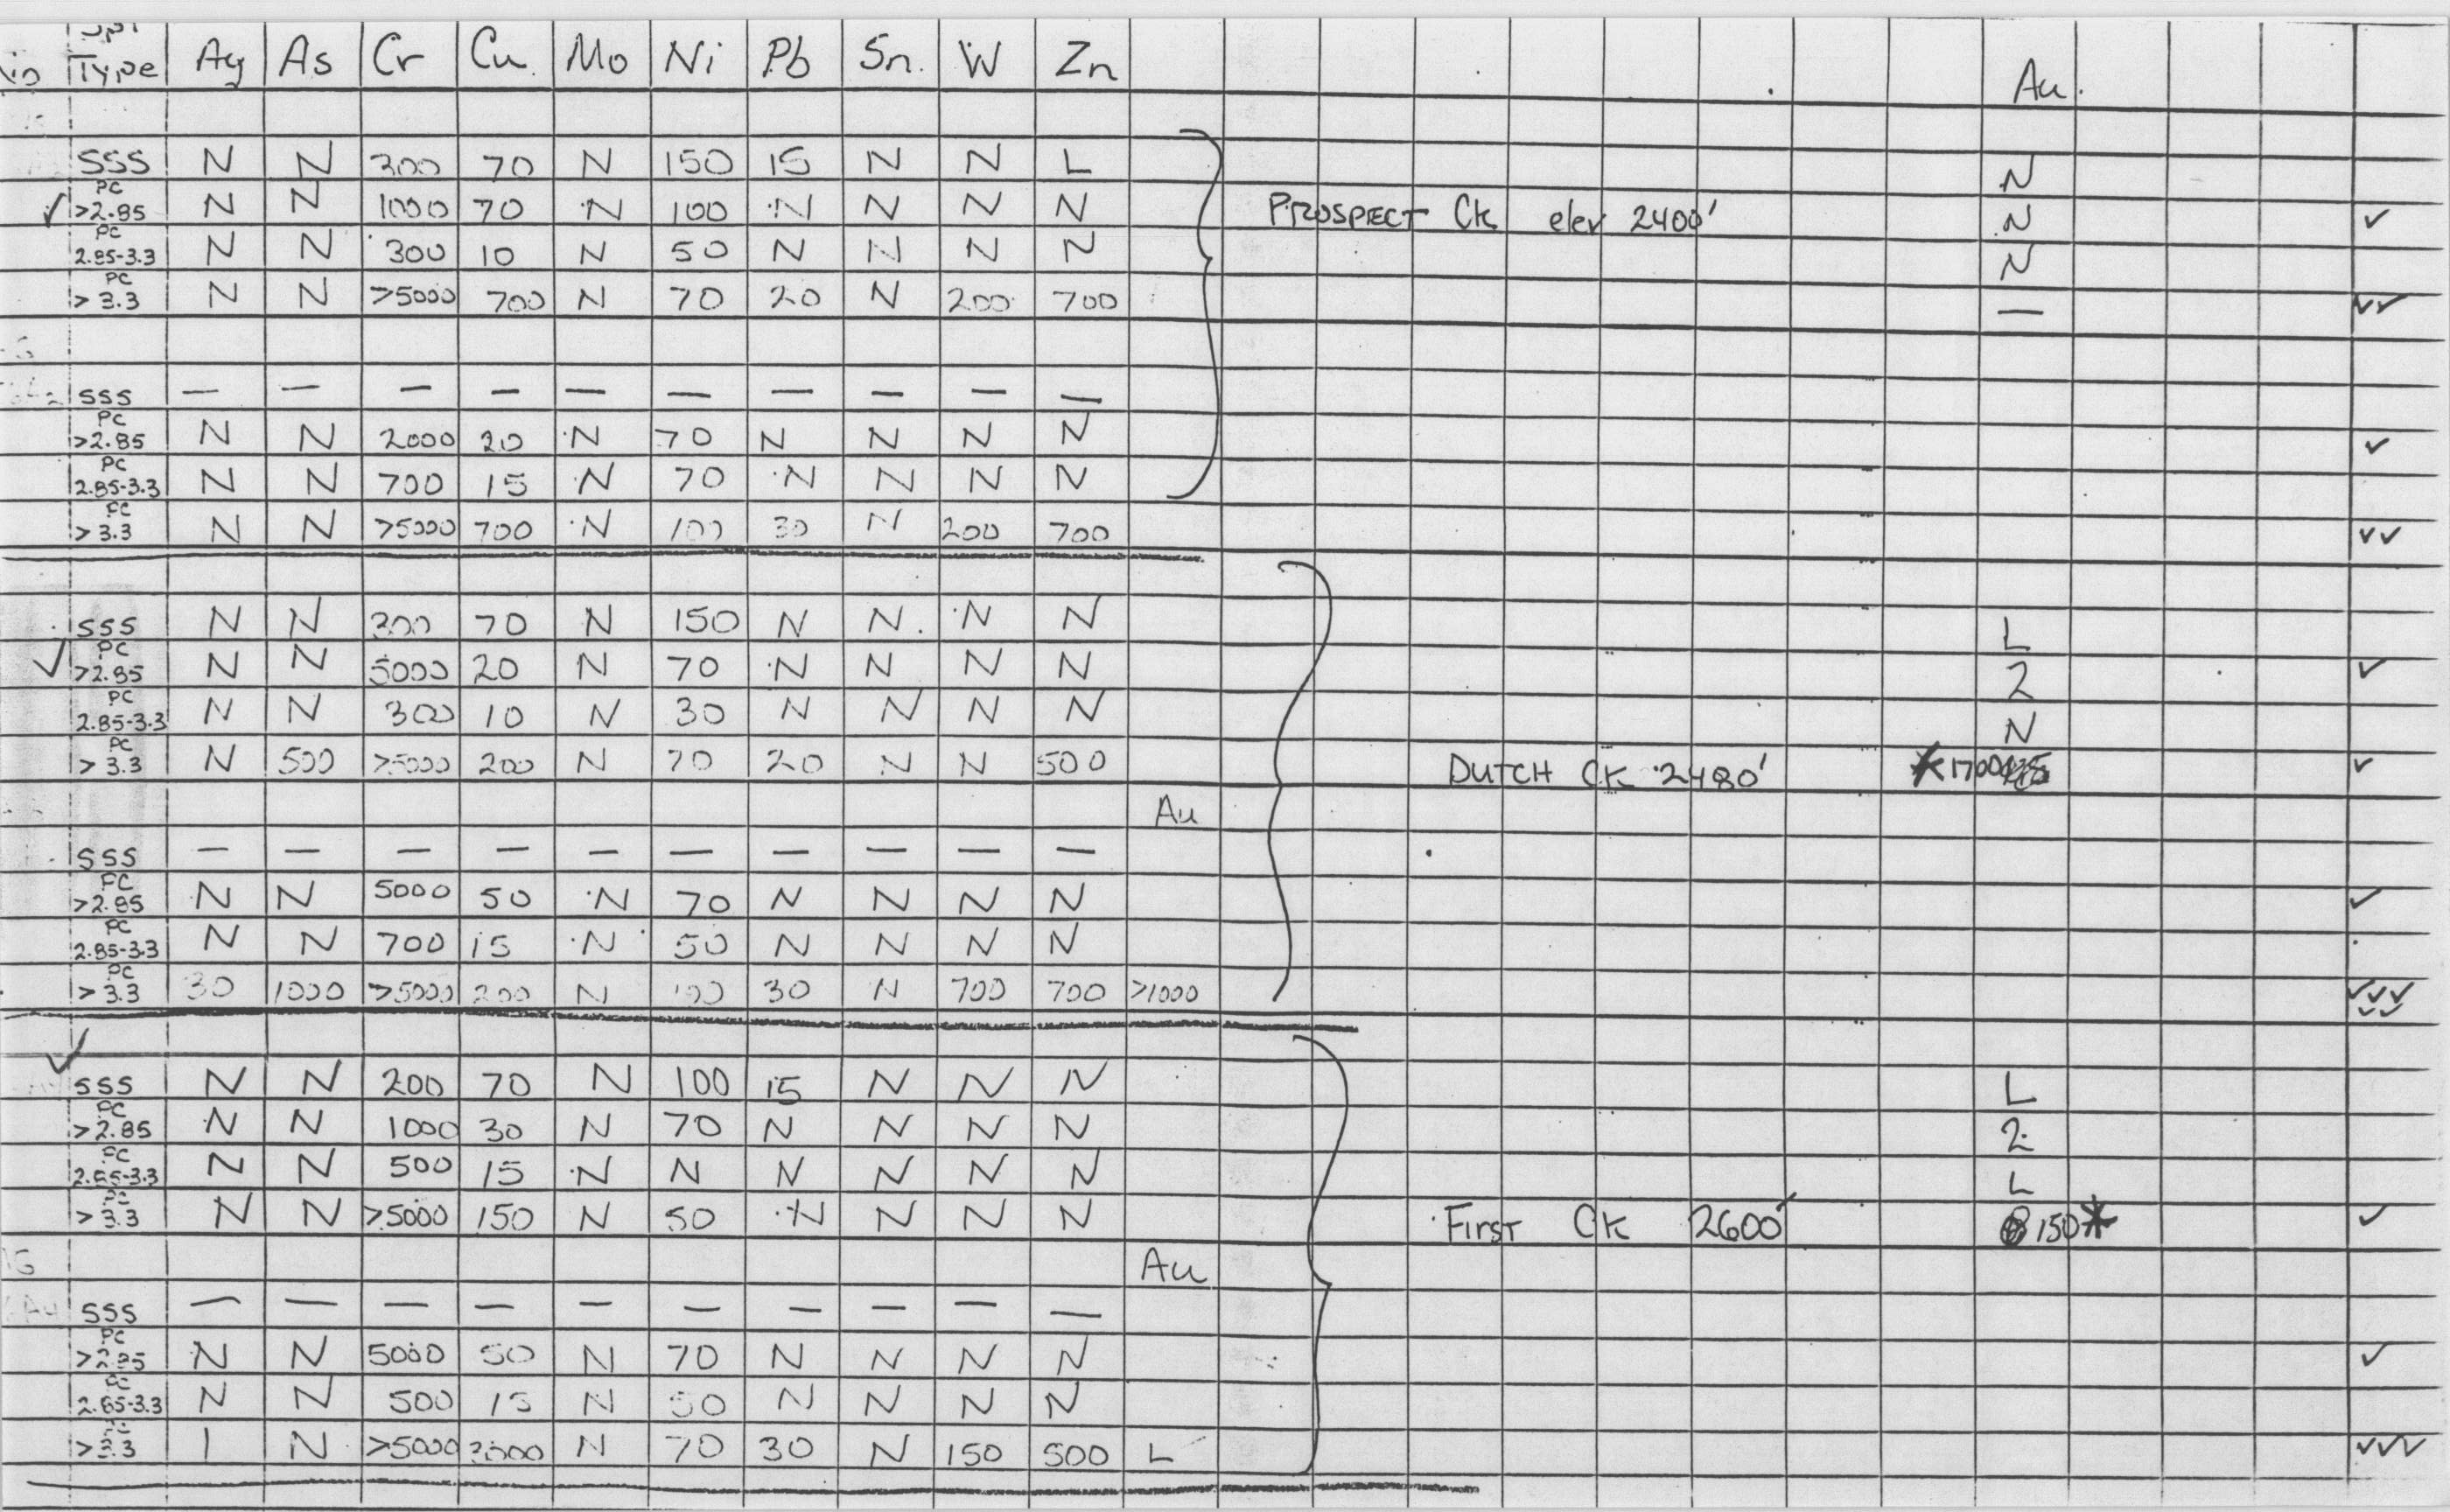 Type Ag As Cr Cu Mo Ni Pb Sn. W Zn Au.
SSS N N 300 70 N 150 15 N N L N
PC
✓ >2.85 N N 1000 70 N 100 N N N N PROSPECT CK elev 2400' N ✓
PC
2.85-3.3 N N 300 10 N 50 N N N N N
PC
>3.3 N N >5000 700 N 70 20 N 200 700 — ✓✓
SSS — — — — — — — — — —
PC
>2.85 N N 2000 20 N 70 N N N N ✓
PC
2.85-3.3 N N 700 15 N 70 N N N N
PC
>3.3 N N >5000 700 N 100 30 N 200 700 ✓✓
SSS N N 300 70 N 150 N N. N N L
PC
✓ >2.85 N N 5000 20 N 70 N N N N 2 ✓
PC
2.85-3.3 N N 300 10 N 30 N N N N N
PC
>3.3 N 500 >5000 200 N 70 20 N N 500 DUTCH CK 2480' *1700 ✓
Au
SSS — — — — — — — — — —
PC
>2.85 N N 5000 50 N 70 N N N N ✓
PC
2.85-3.3 N N 700 15 N 50 N N N N
PC
>3.3 30 1000 >5000 200 N 100 30 N 700 700 >1000 ✓✓✓✓✓
✓
SSS N N 200 70 N 100 15 N N N L
PC
>2.85 N N 1000 30 N 70 N N N N 2
PC
2.85-3.3 N N 500 15 N N N N N N L
PC
>3.3 N N >5000 150 N 50 N N N N First CK 2600' 150* ✓
Au
SSS — — — — — — — — — —
PC
>2.85 N N 5000 50 N 70 N N N N ✓
PC
2.85-3.3 N N 500 15 N 50 N N N N
PC
>3.3 1 N >5000 N 70 30 N 150 500 L ✓✓✓